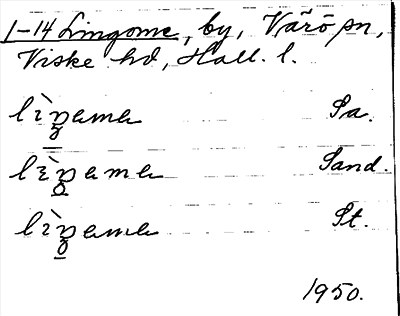 1-14 Lingome, by, Värö sn,
Viske hd, Hall. l.
lìŋɐmɐ Sa.
lìŋɐmɐ Sand.
lìŋɐmɐ St.
1950.